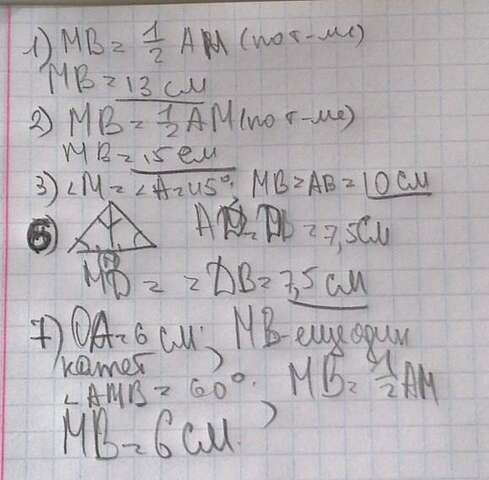 1) MB = 1/2 AM (по т-ме)
MB = 13 см
2) MB = 1/2 AM (по т-ме)
MB = 15 см
3) ∠M = ∠A = 45°; MB = AB = 10 см
AD = DB = 7,5 см
MD = = DB = 7,5 см
7) OA = 6 см; MB - еще один
катет
∠AMB = 60°; MB = 1/2 AM
MB = 6 см.